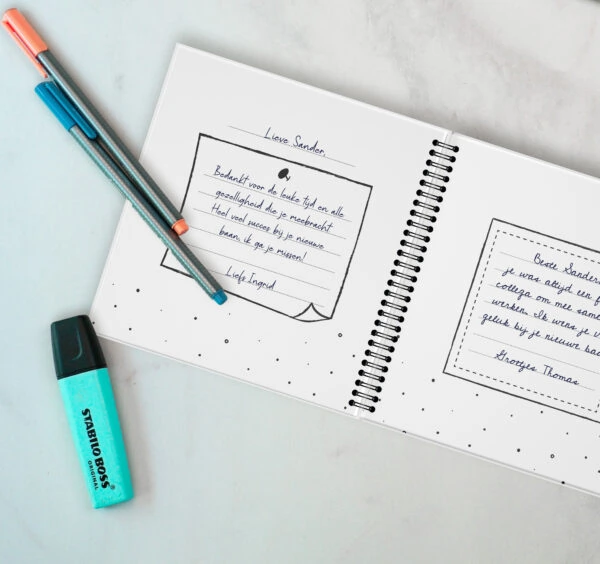 Lieve Sander,
Bedankt voor de leuke tijd en alle
gezelligheid die je meebracht.
Heel veel succes bij je nieuwe
baan, ik ga je missen!
Liefs Ingrid
Beste Sander
je was altijd een
collega om mee
werken. Ik wens je
geluk bij je nieuwe
Groetjes Thomas
STABILO BOSS®
ORIGINAL